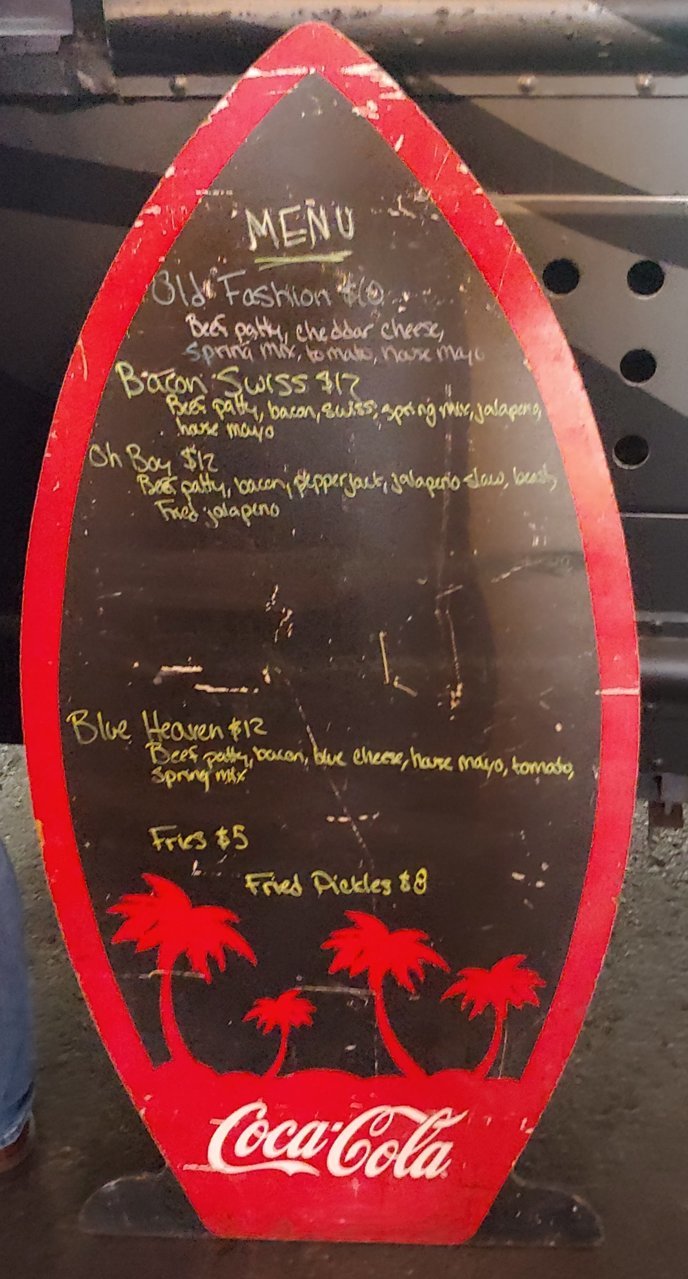 MENU
Old Fashion $10
Beef patty, cheddar cheese,
Spring mix, tomato, house mayo
Bacon Swiss $12
Beef patty, bacon, swiss, spring mix, jalapeno,
house mayo
Oh Boy $12
Beef patty, bacon, pepperjack, jalapeno slaw,
Fried jalapeno
Blue Heaven $12
Beef patty, bacon, blue cheese, house mayo, tomato,
Spring mix
Fries $5
Fried Pickles $8
Coca-Cola